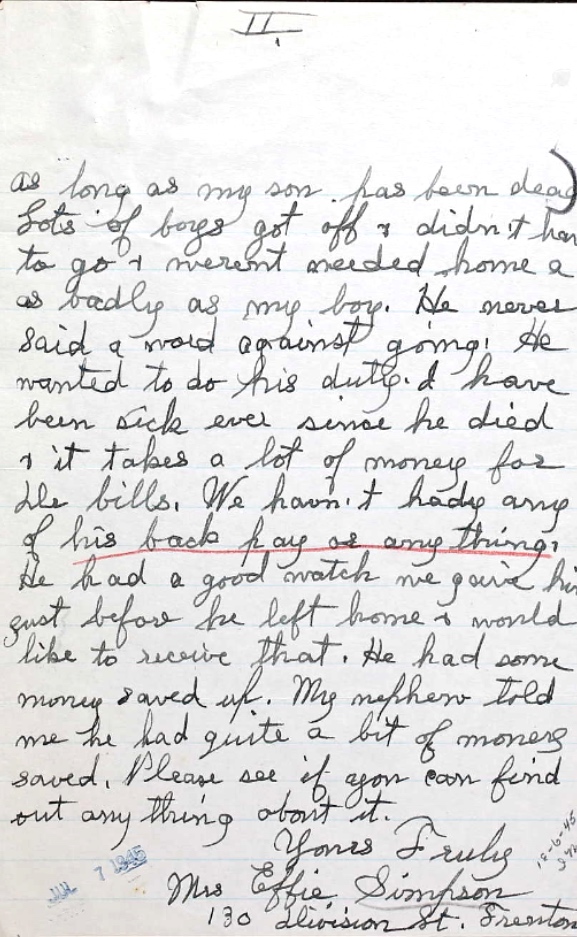 II.
as long as my son has been dead
Lots of boys got off & didn't hav
to go & werent needed home a
as badly as my boy. He never
said a word against going. He
wanted to do his duty. I have
been sick ever since he died
& it takes a lot of money for
Dr bills. We havn't hady any
of his back pay or any thing.
He had a good watch we gaive hi
just before he left home & would
like to receive that. He had some
money saved up. My nephew told
me he had quite a bit of money
saved. Please see if you can find
out any thing about it.
Yours Truly
Mrs Effie Simpson
130 Division St. Trenton
JUL 7 1945
12-6-45